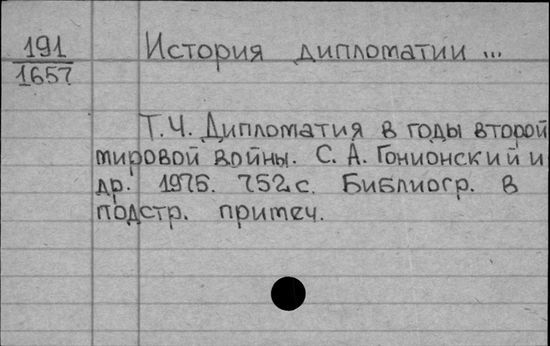 191
1657
История дипломатии ...
Т.Ч. Дипломатия в годы второй
мировой войны. С. А. Гонионский и
др. 1975. 752 с. Библиогр. в
подстр. примеч.